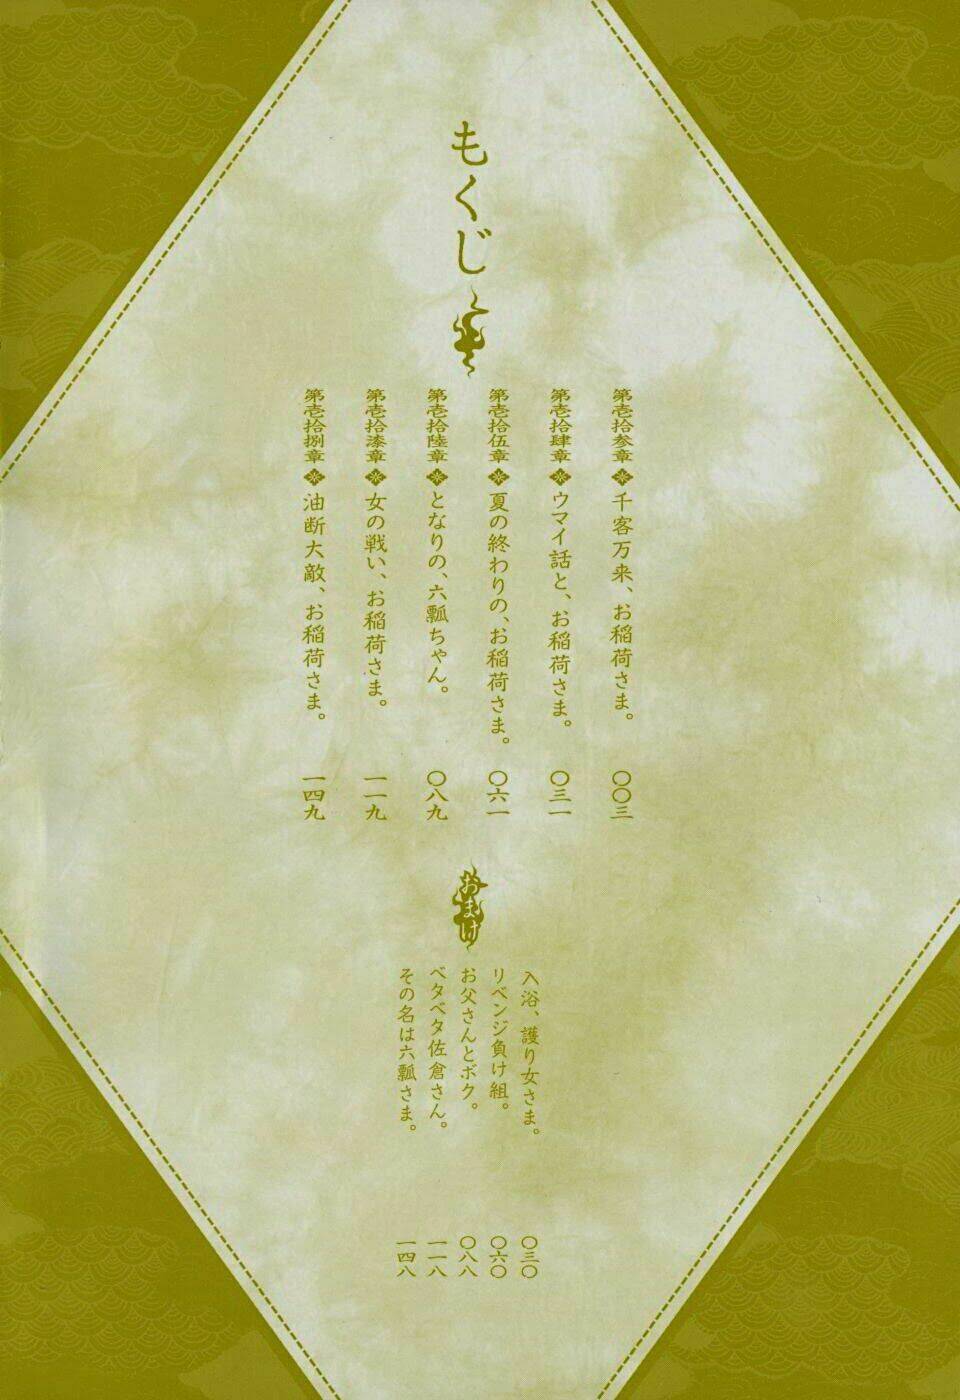 もくじ
第壱拾参章 千客万来、お稲荷さま。 〇〇三
第壱拾肆章 ウマイ話と、お稲荷さま。 〇三一
第壱拾伍章 夏の終わりの、お稲荷さま。 〇六一
第壱拾陸章 となりの、六瓢ちゃん。 〇八九
第壱拾漆章 女の戦い、お稲荷さま。 一一九
第壱拾捌章 油断大敵、お稲荷さま。 一四九
おまけ
入浴、護り女さま。 〇三〇
リベンジ負け組。 〇六〇
お父さんとボク。 〇八八
ベタベタ佐倉さん。 一一八
その名は六瓢さま。 一四八